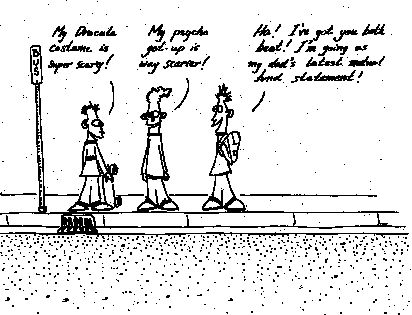 BUS
My Dracula
costume is
super scary!
My psycho
get-up is
way scarier!
Ha! I've got you both
beat! I'm going as
my dad's latest mutual
fund statement!